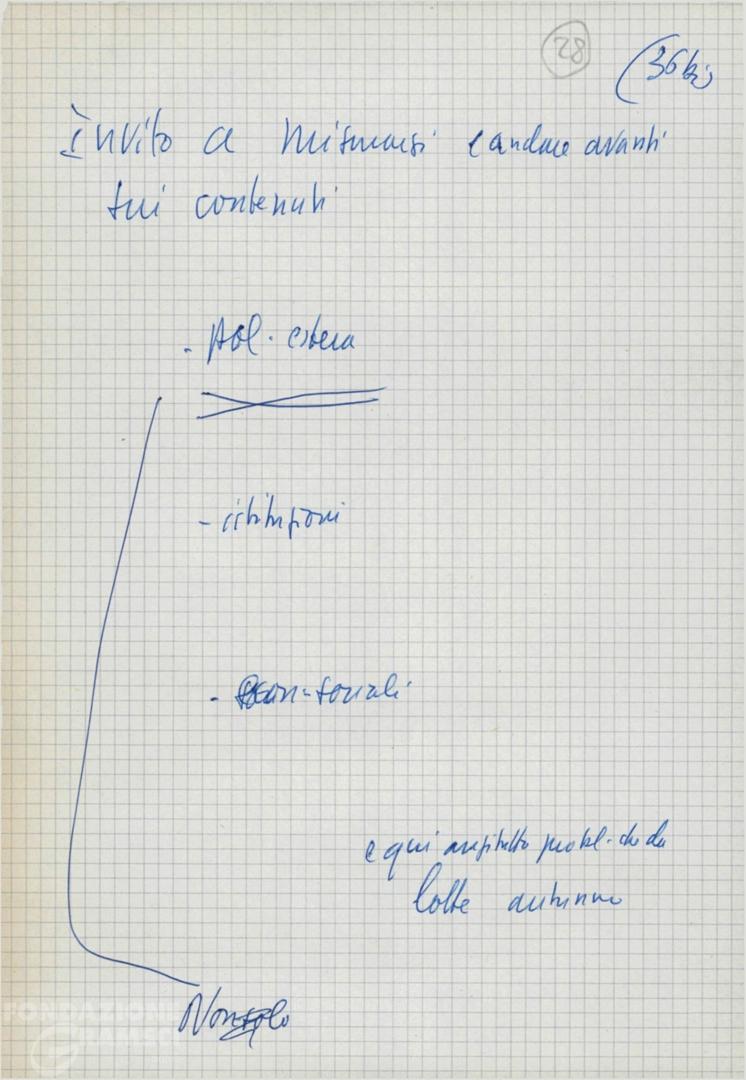 28
(36 bis
Invito a misurarsi e andare avanti
sui contenuti
- pol. estera
- istituzioni
- econ-sociali
e qui anzitutto probl. che da
lotte autunno
Non solo
FONDAZIONE